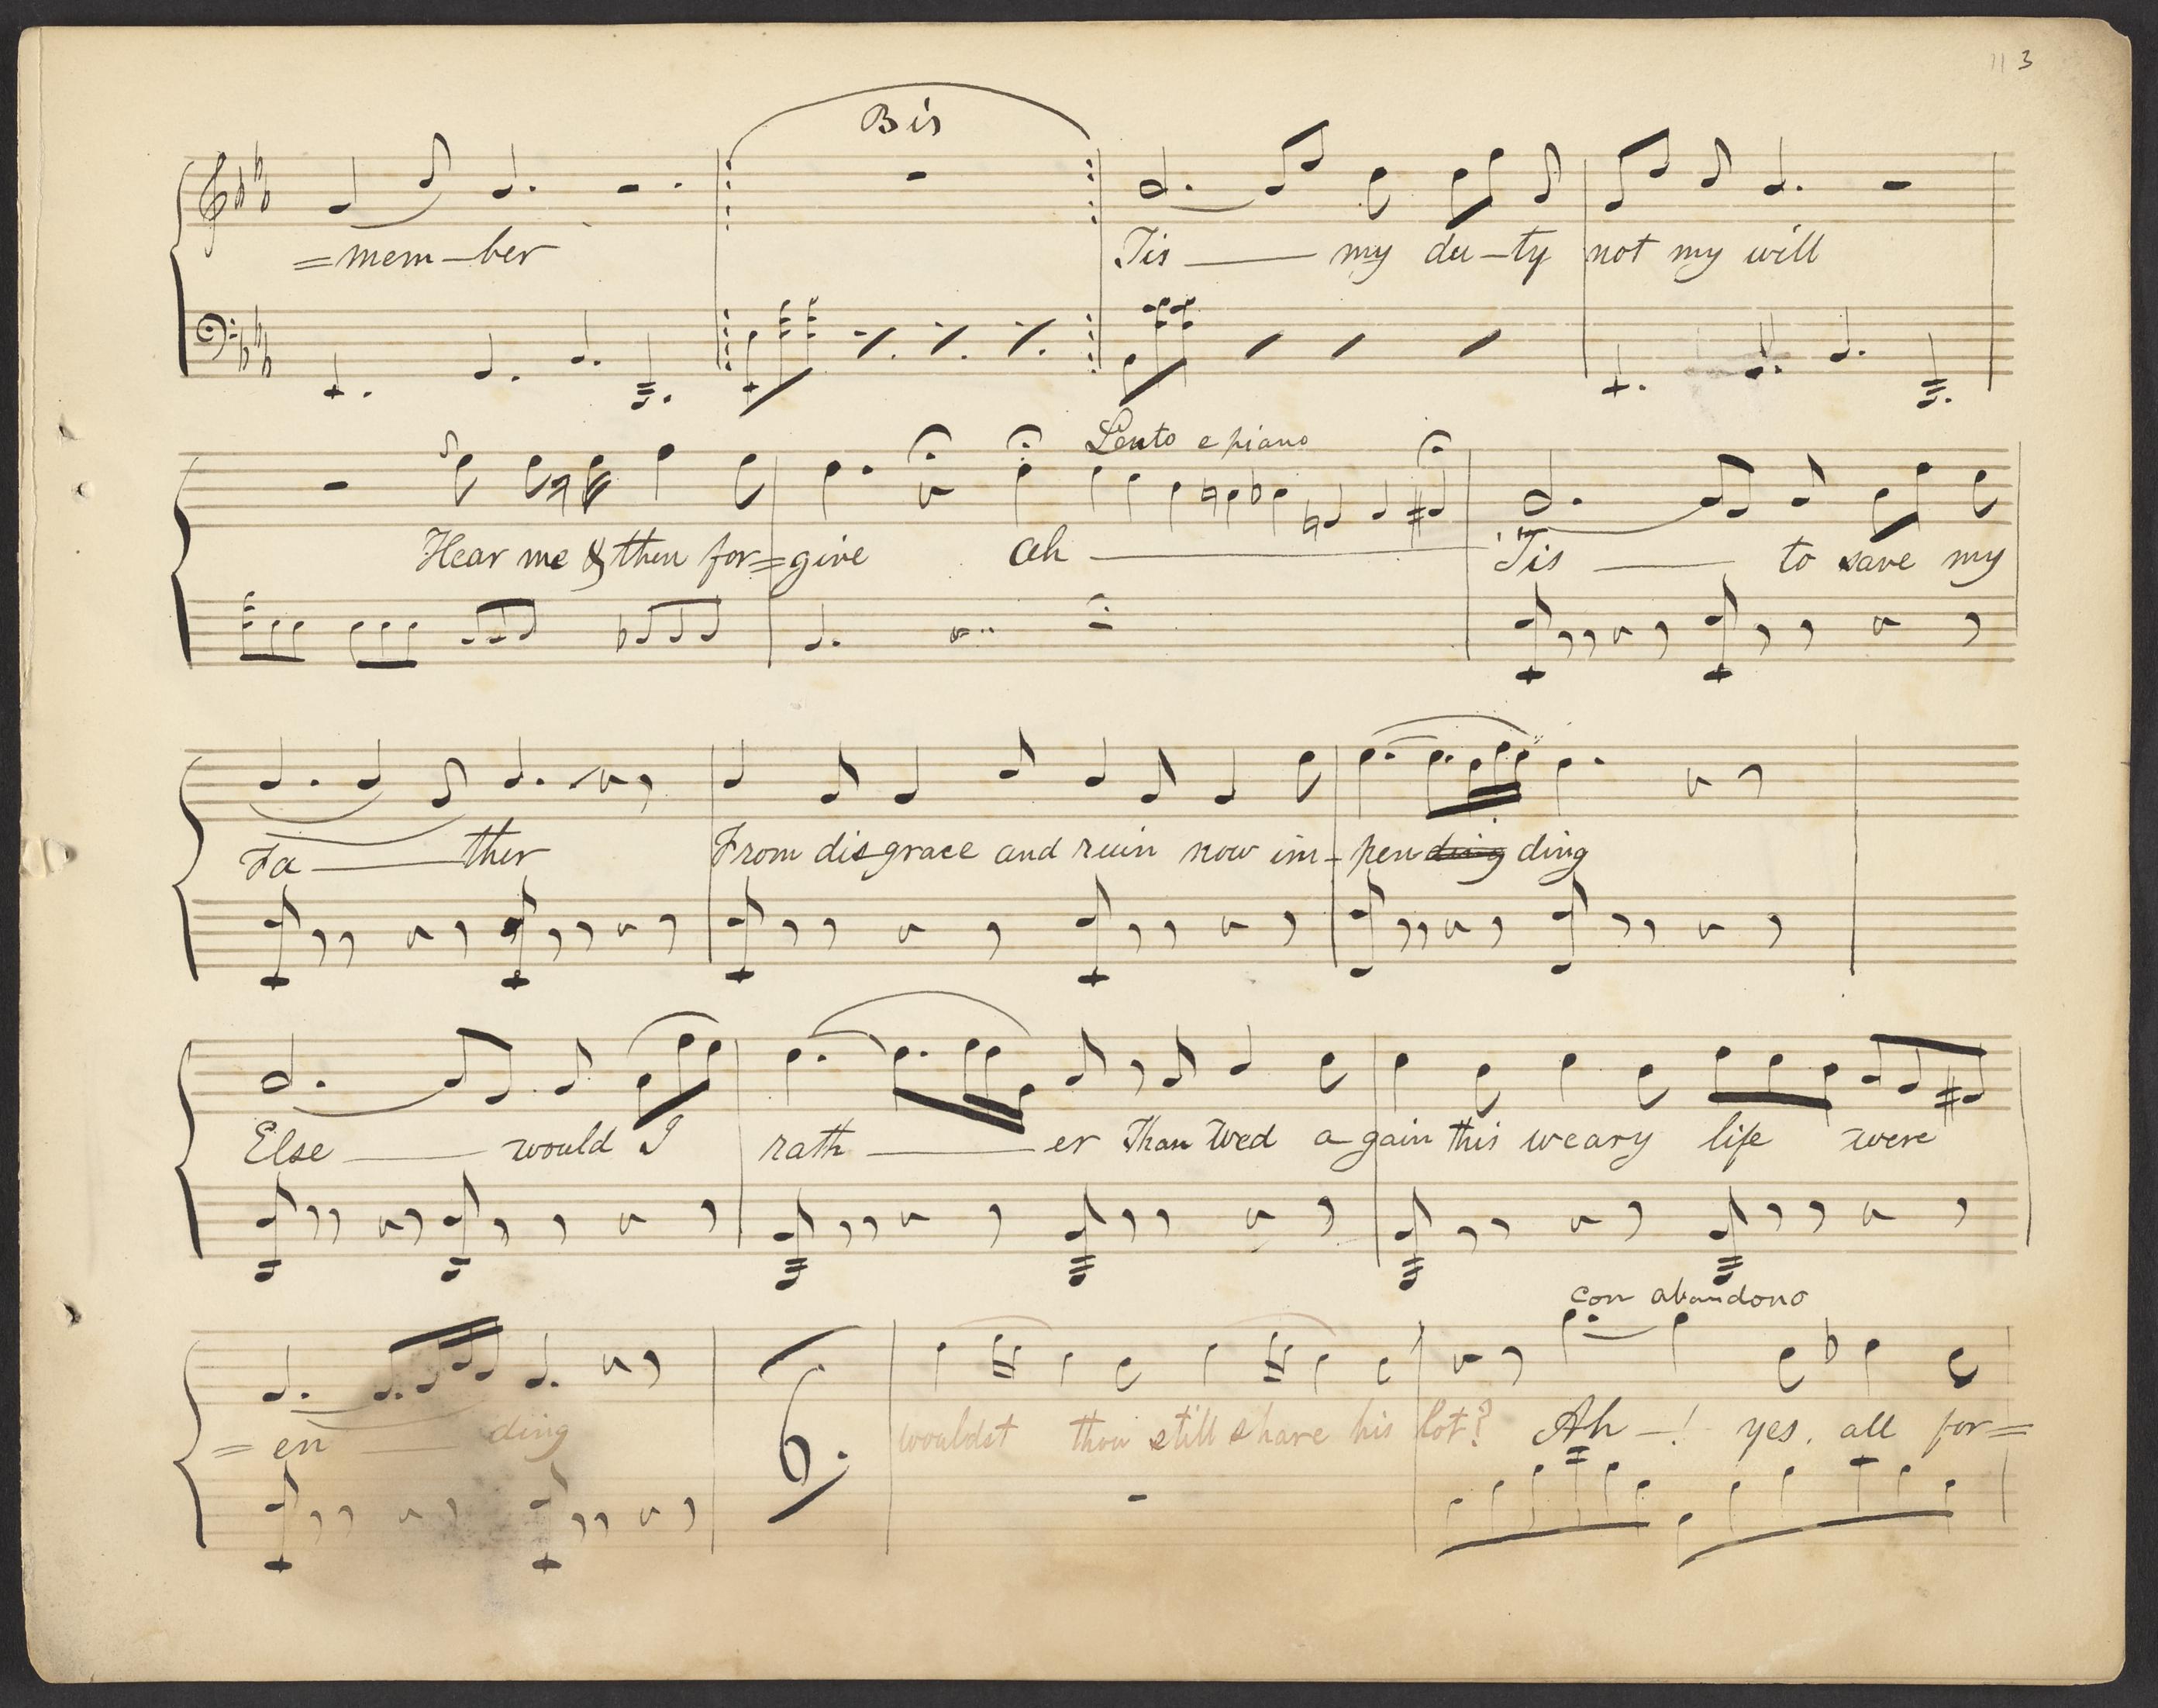 113
Bis
=mem-ber Tis — my du-ty not my will
Lento e piano
Hear me & then for=give ah — 'Tis — to save my
Fa — ther From disgrace and ruin now im-pen ding ding
Else — would I rath — er Than wed a-gain this weary life were
con abandono
=en — ding 6. wouldst thou still share his lot? Ah -! yes. all for=